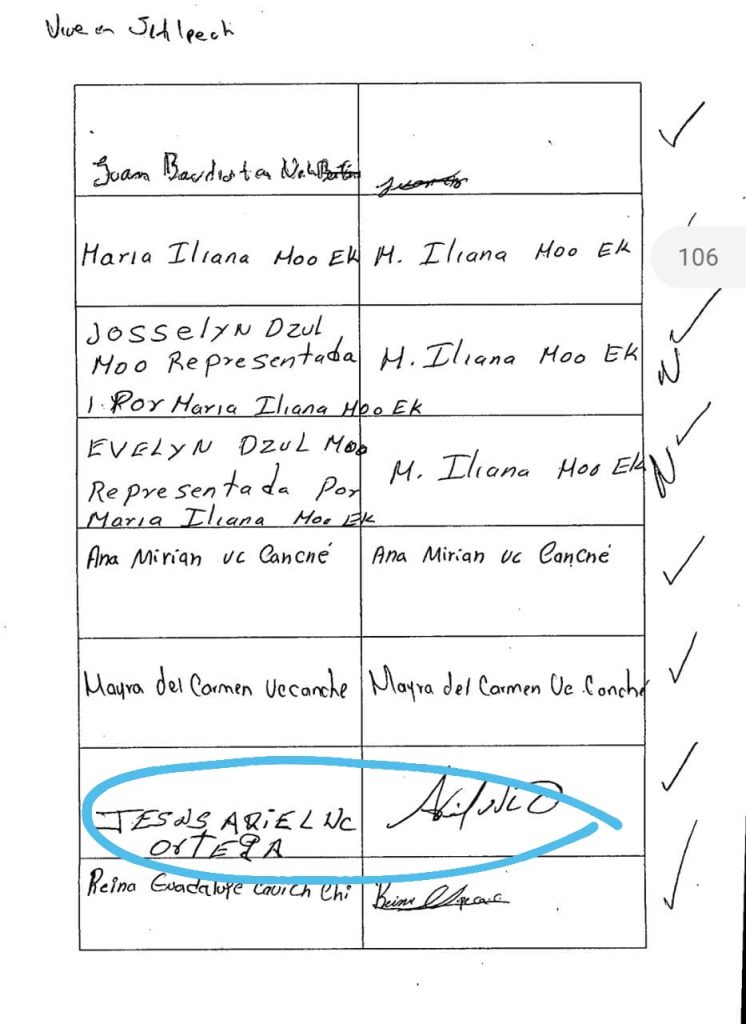 Vive en Sitilpech
Juan Baudista
Maria Iliana Moo EK M. Iliana Moo EK
106
JosselyN DZul
Moo Representada M. Iliana Moo EK
1. Por Maria Iliana Moo EK
N
EVELyN DZUL Moo
Representada Por M. Iliana Moo EK
N
Maria Iliana Moo EK
Ana Mirian uc Cancné Ana Mirian uc Cancné
Mayra del Carmen Uccanche Mayra del Carmen Uc Conché
JESUS ARiEL UC
OrTEgA
Reina Guadalupe Cavich Chi Reina